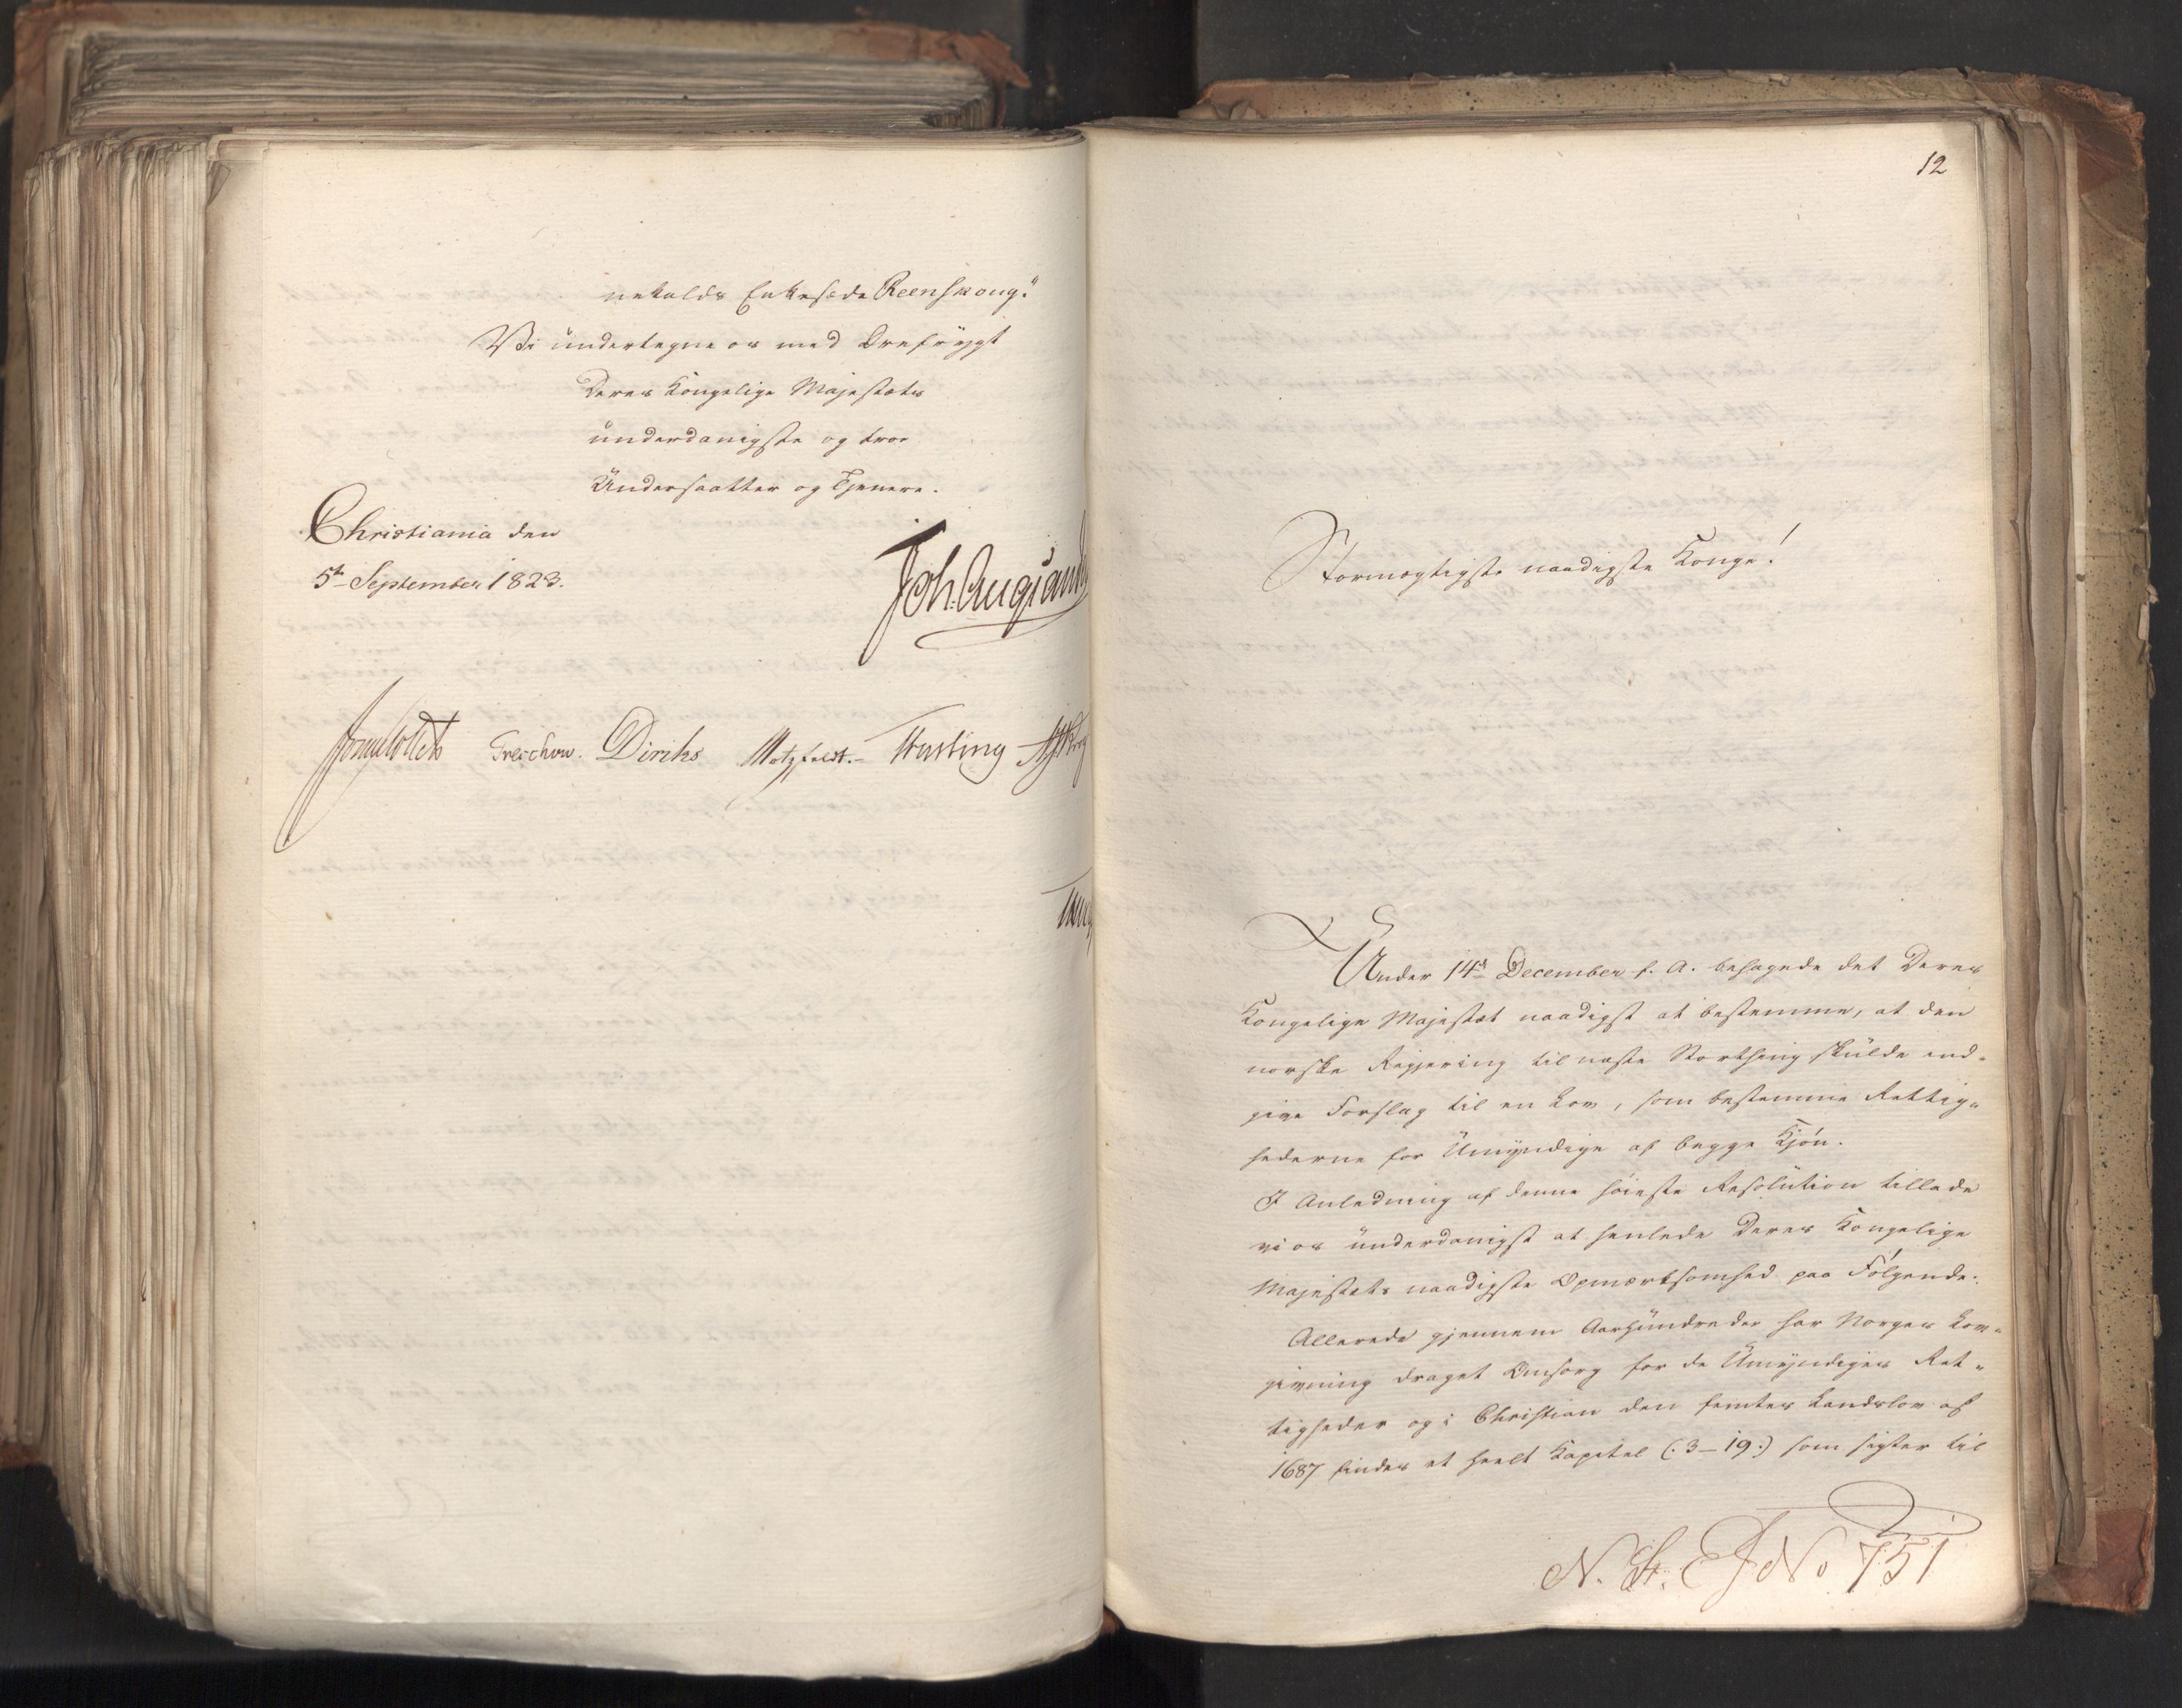 nekalds Enkesæde Reenskoug."
Vi undertegne os med Ærefrygt
Deres Kongelige Majestæts
underdanigste og troe
Undersaatter og Tjenere.
Christiania den
5te September 1823.
Joh. Aug. Sand
Jonas Collett Treschow. Diriks Motzfeldt. Fasting
12
Stormægtigste naadigste Konge!
Under 14de December f. A. behagede det Deres
Kongelige Majestæt naadigst at bestemme, at den
norske Regjering til næste Storthing skulde ind-
give Forslag til en Lov, som bestemme Rettig-
hederne for Umyndige af begge Kjøn.
I Anledning af denne høieste Resolution tillade
vi os underdanigst at henlede Deres Kongelige
Majestæts naadigste Opmærksomhed paa Følgende:
Allerede gjennem Aarhundreder har Norges Lov-
givning draget Omsorg for de Umyndiges Ret-
tigheder og i Christian den femtes Landslov af
1687 findes et heelt Kapitel (: 3-19 :) som sigter til
N. St. E J No 751